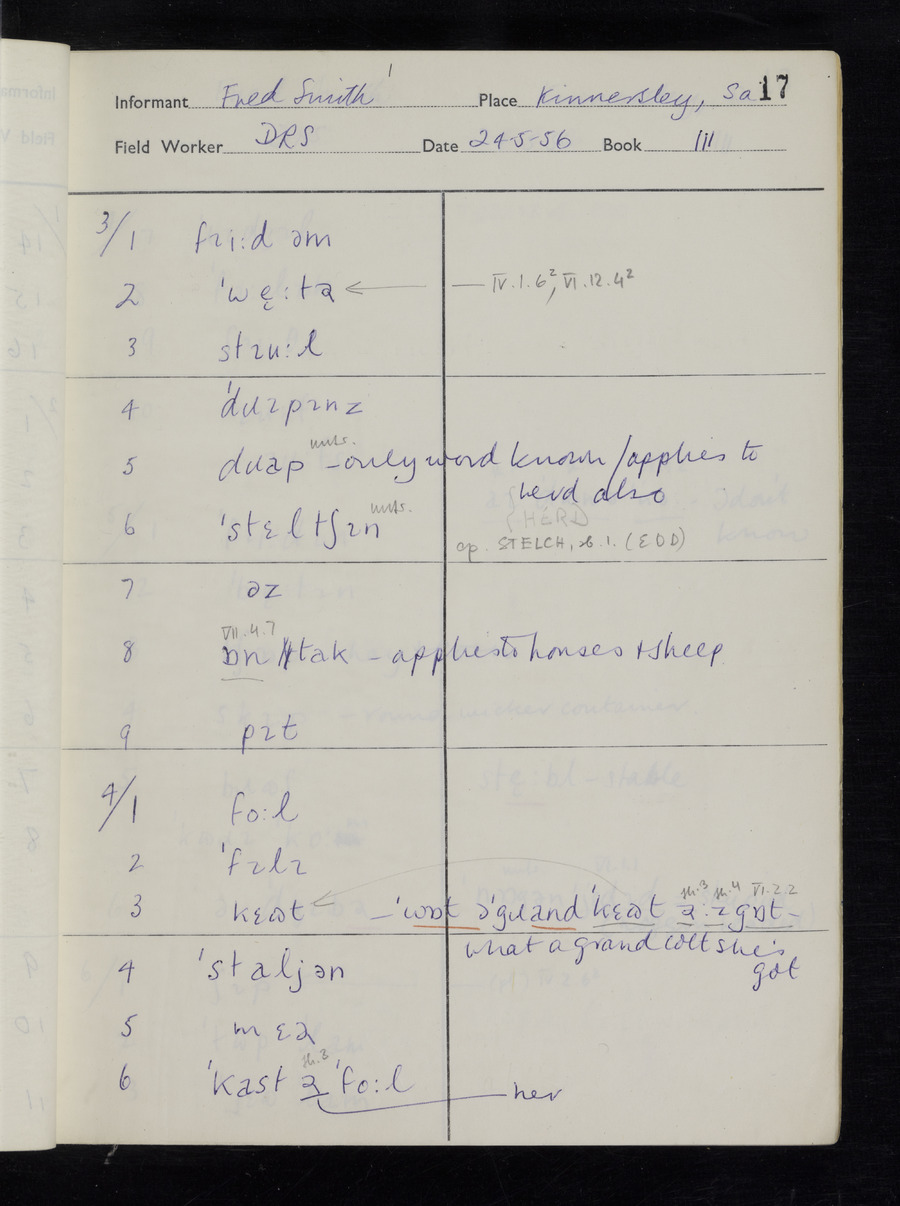 Informant Fred Smith Place Kinnersley, Sa 17
Field Worker DRS Date 24-5-56 Book III
3/1 fɹi:d əm
2 ˈwę:tə ← IV.1.6², VI.12.4²
3 stɹu:l
4 ˈdɹəpɹnz
5 dɹap – only word known / applies to
herd also
HERD
6 ˈstɛltʃɹn
cp. STELCH, sb.1. (EDD)
7 əz
VII.4.7
8 ɒn tak – applies to horses + sheep
9 pɹt
4/1 fo:l
2 ˈfɹlɪ
th.3 th.4 VI.2.2
3 kɛɷt – ˈwɒt əˈgɹand ˈkɛɷt ə: z gɒt –
what a grand colt she's
got
4 ˈstaljən
5 mɛə
th.3
6 ˈkast ə ˈfo:l her